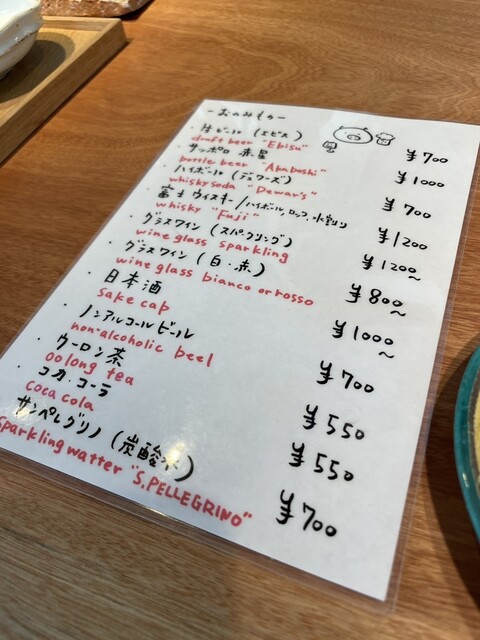 -おのみもの-
・生ビール (エビス) ¥700
draft beer "Ebisu"
・サッポロ 赤星 ¥1000
bottle beer "Akaboshi"
・ハイボール (デュワーズ) ¥700
whisky soda "Dewar's"
・富士ウイスキー/ハイボール,ロック,水割り ¥1200
whisky "Fuji"
・グラスワイン (スパークリング) ¥1200~
wine glass sparkling
・グラスワイン (白・赤) ¥800~
wine glass bianco or rosso
・日本酒 ¥1000~
sake cap
・ノンアルコールビール ¥700
non-alcoholic beel
・ウーロン茶 ¥550
oolong tea
・コカ・コーラ ¥550
coca cola
サンペレグリノ (炭酸水) ¥700
sparkling watter "S.PELLEGRINO"